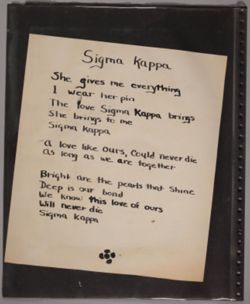 Sigma Kappa
She gives me everything
I wear her pin
The love Sigma Kappa brings
She brings to me
Sigma Kappa
A love like ours, Could never die
As long as we are together
Bright are the pearls that shine
Deep is our bond
We know this love of ours
Will never die
Sigma Kappa